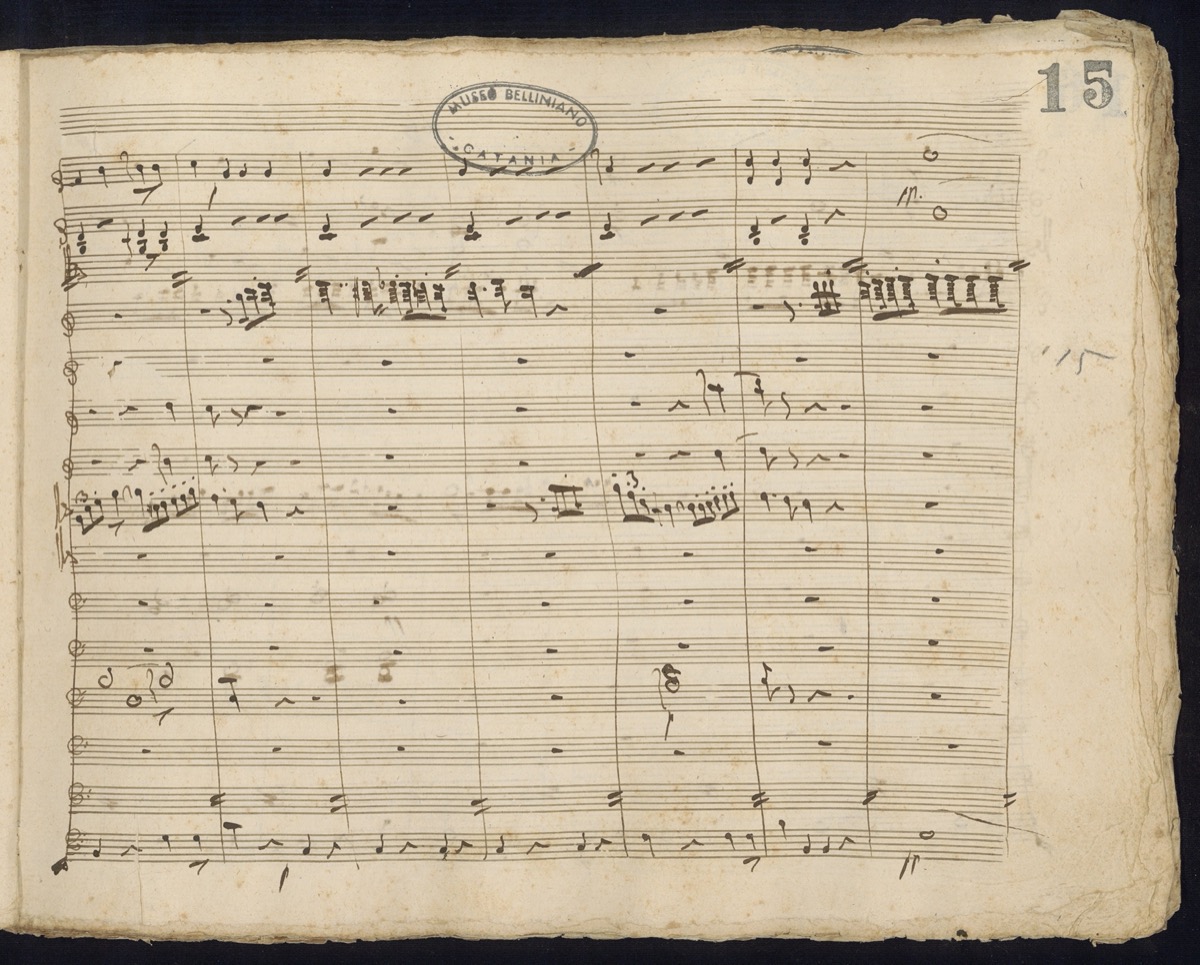 15
MUSEO BELLINIANO
CATANIA
15
3
3